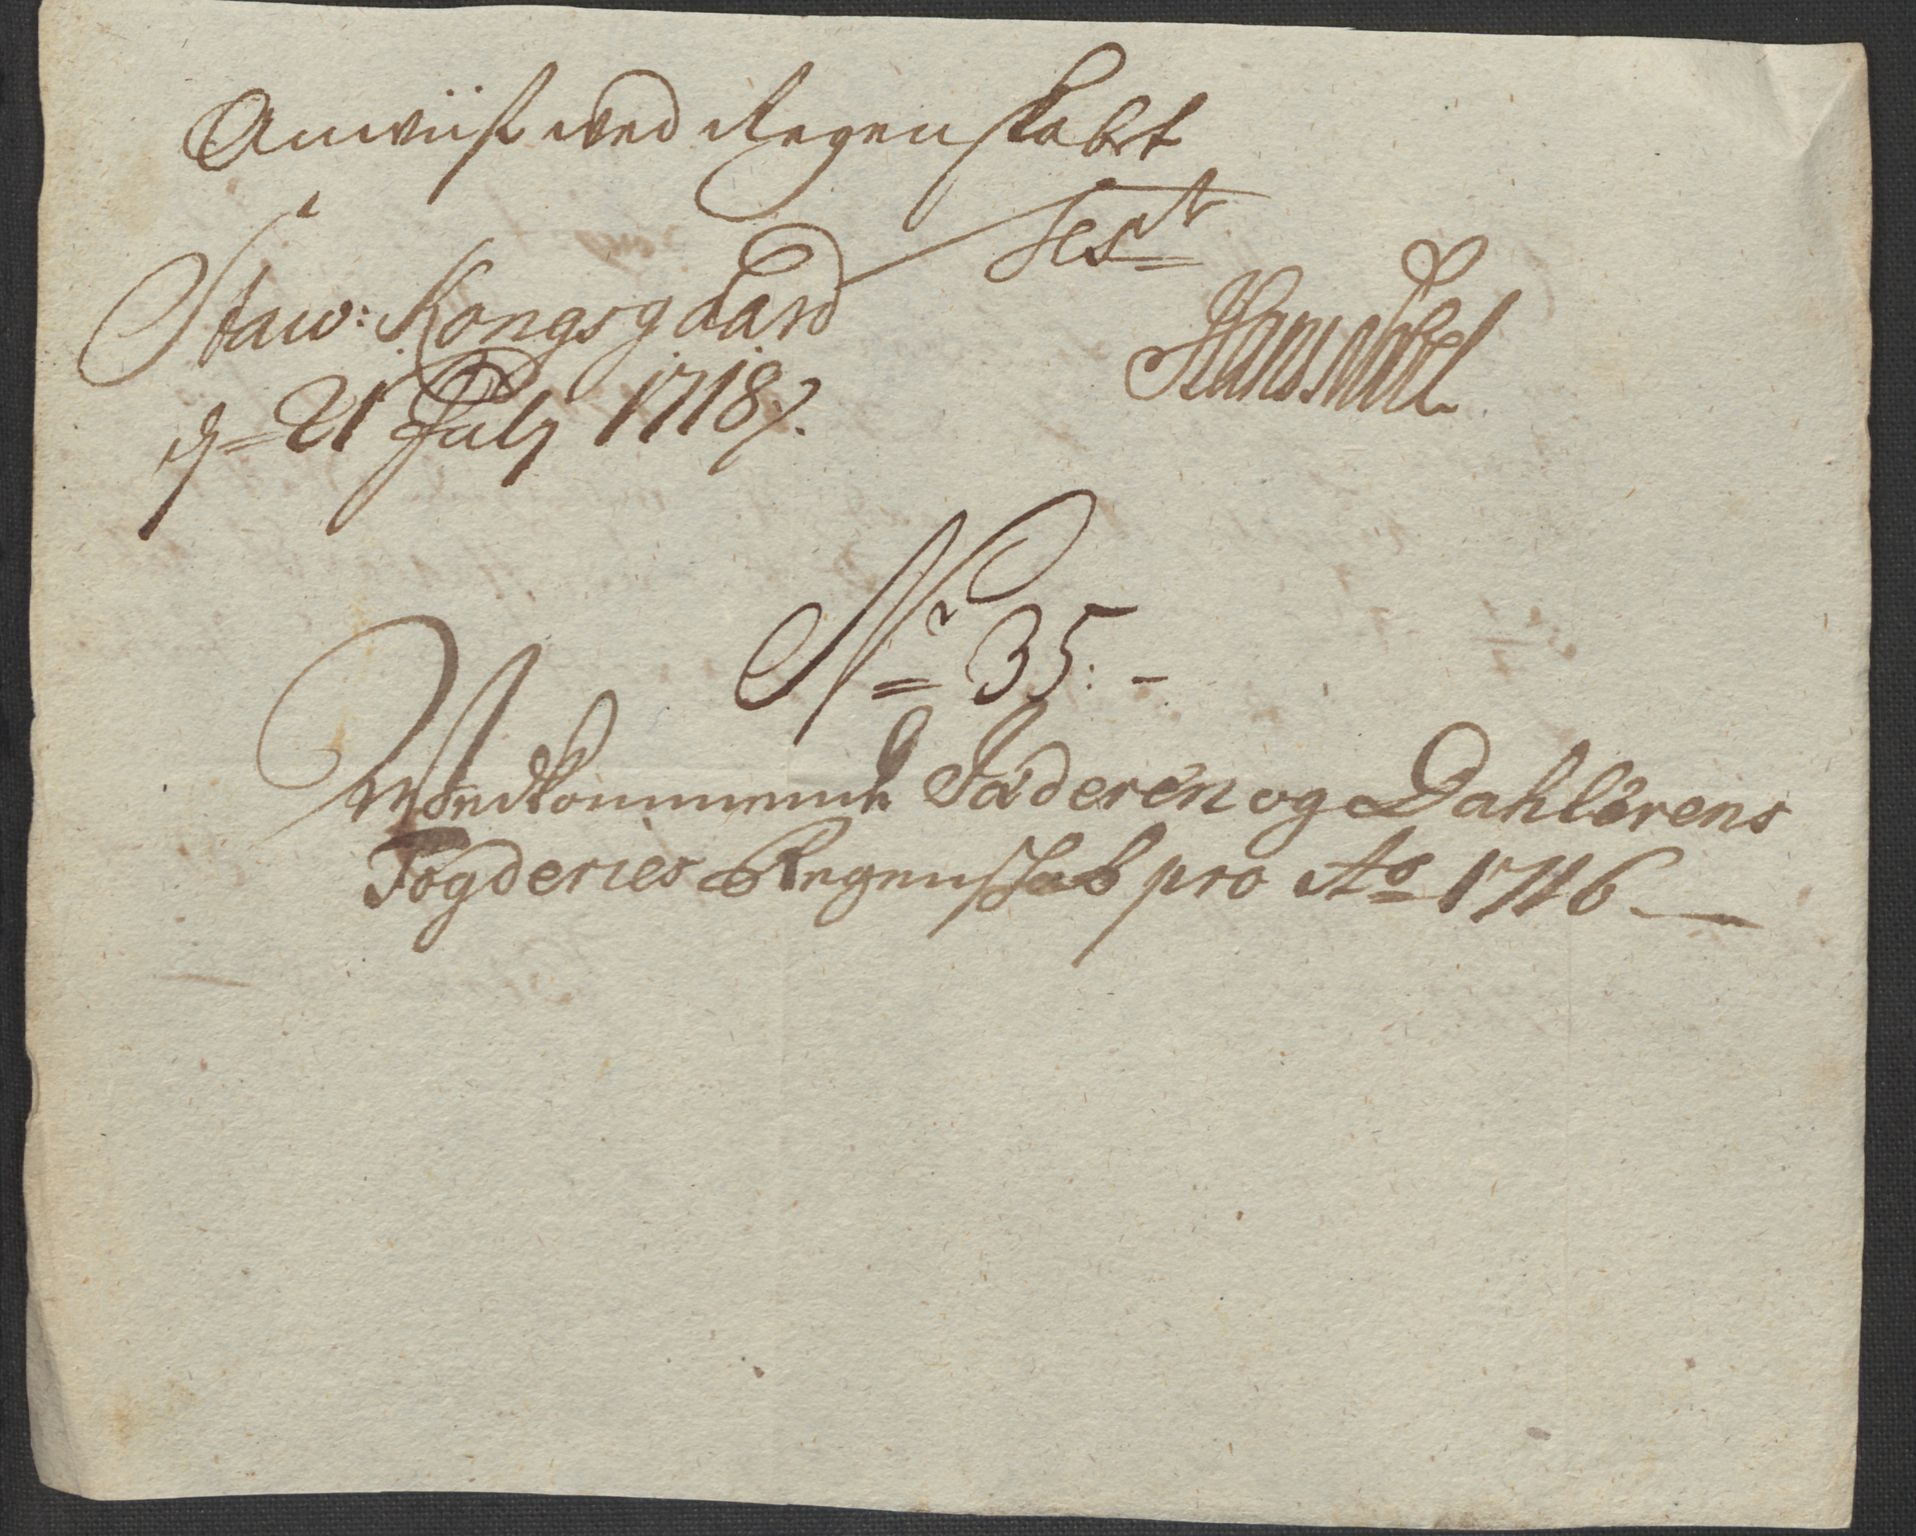 Anwiist ved Regenskabet
Test
Staw: Kongsgaard
d= 21 July 1718/.
Hans Nobel
No= 35: -
Wedkommende Jæderen og Dahlerens
Fogderies Regenskab pro Ao 1716